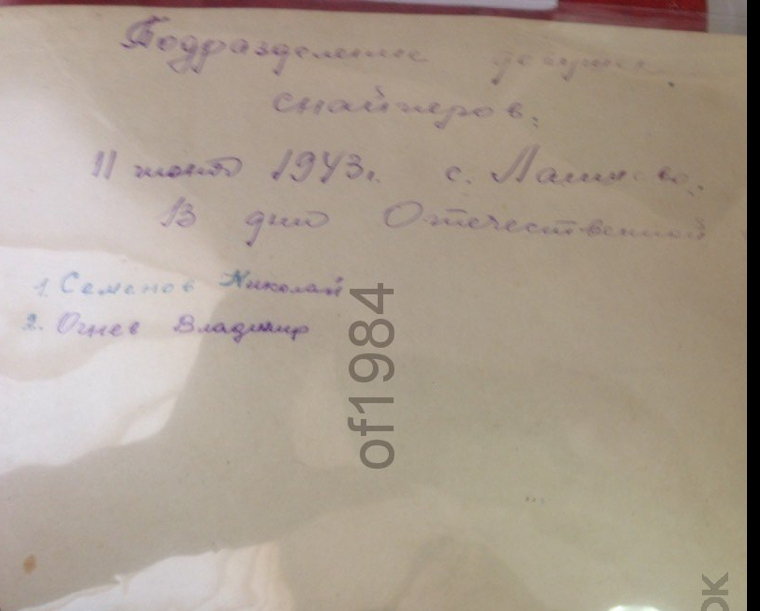 Подразделение девушек
снайперов.
11 1943г. с.
В дни Отечественной
1. Семенов Николай
2. Огнев Владимир
of1984
ок